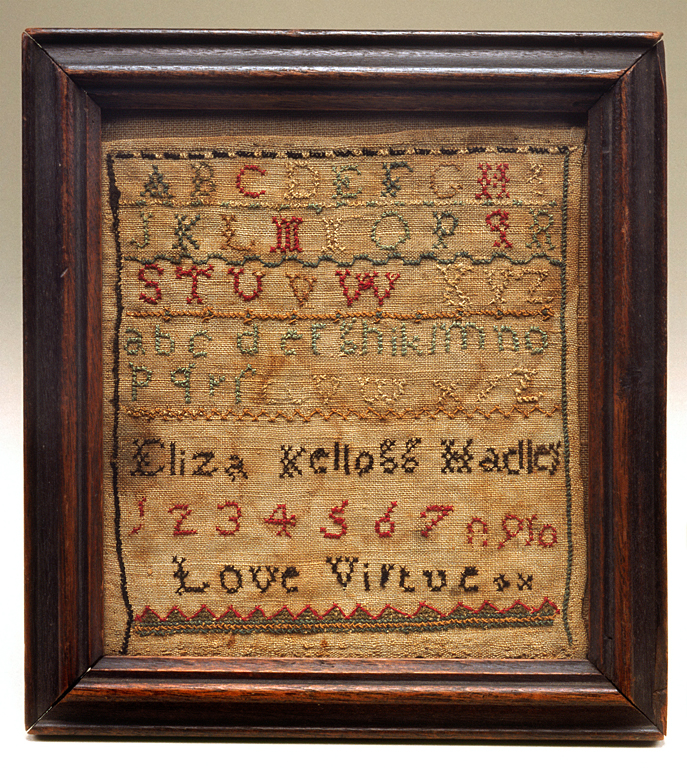 A B C D E F G H I
J K L M N O P Q R
S T U V W X Y Z
a b c d e f g h i k l m n o
p q r s t u v w x y z
Eliza Kellogg Hadley
1 2 3 4 5 6 7 8 9 10
Love Virtue